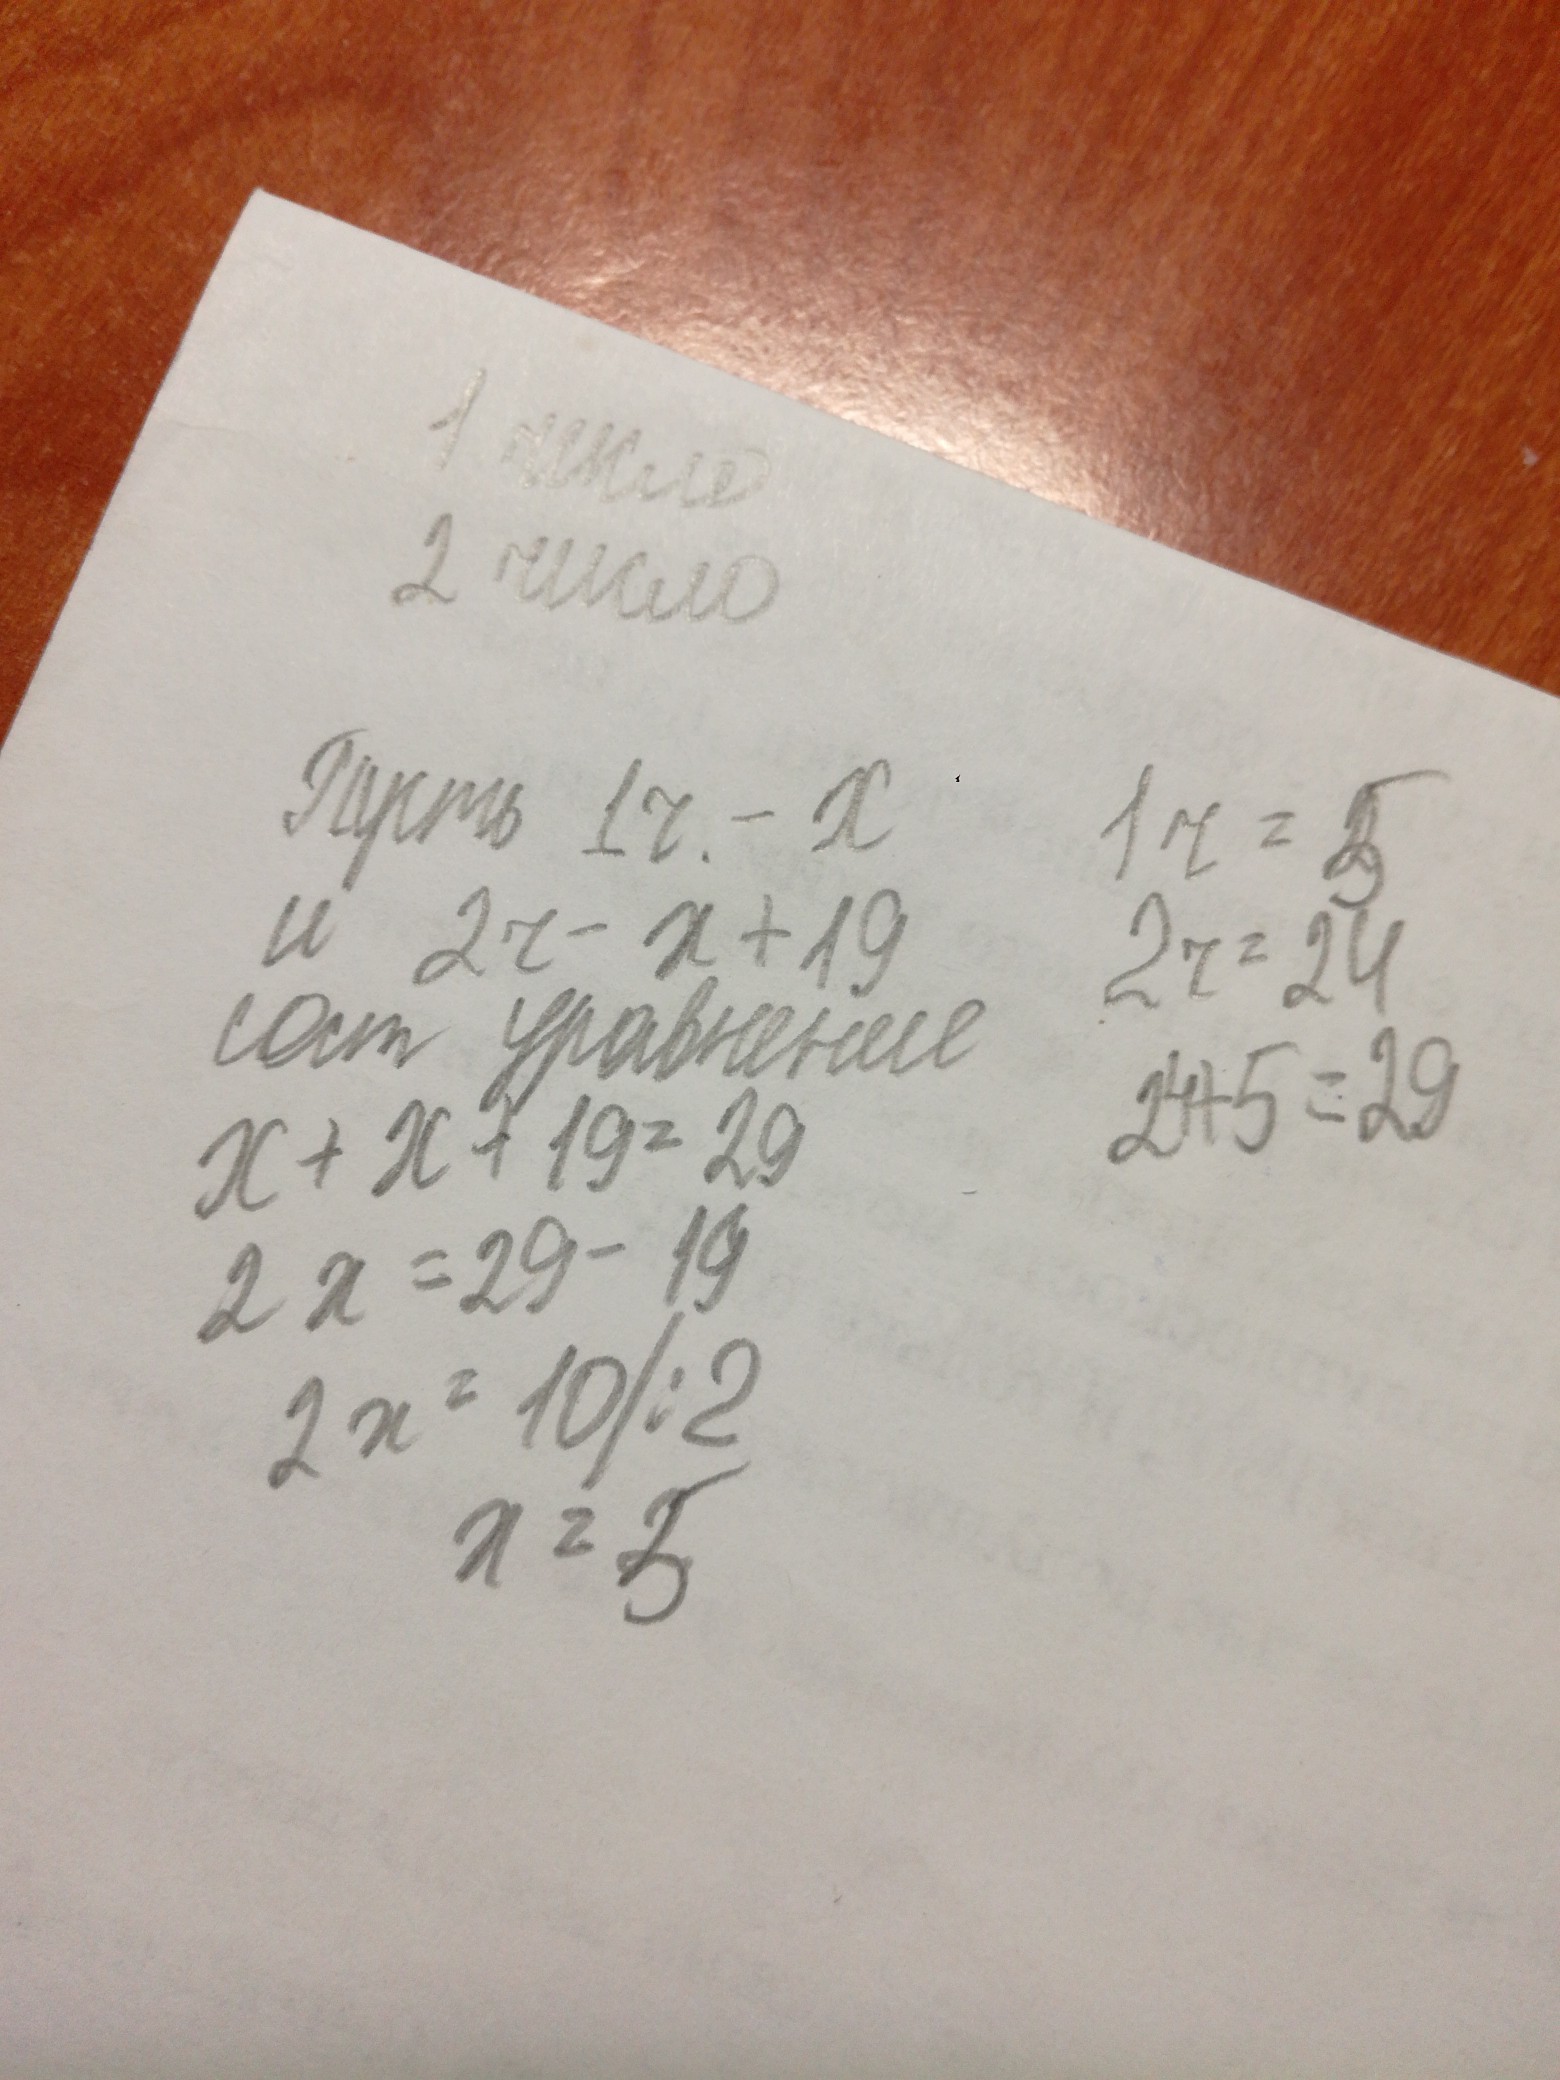 1 число
2 число
Пусть 1ч. - x
и 2ч - x + 19
сост уравнение
x + x + 19 = 29
2x = 29 - 19
2x = 10/:2
x = 5
1ч = 5
2ч = 24
24+5 = 29